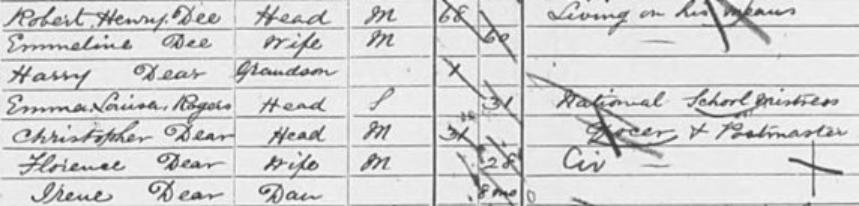 Robert Henry Dee Head M 68 Living on his means
Emmeline Dee Wife M 60 —
Harry Dear Grandson
Emma Louisa Rogers Head S 31 National School Mistress
Christopher Dear Head M 31 Grocer & Postmaster
Florence Dear Wife M 28
Irene Dear Dau 8 mo